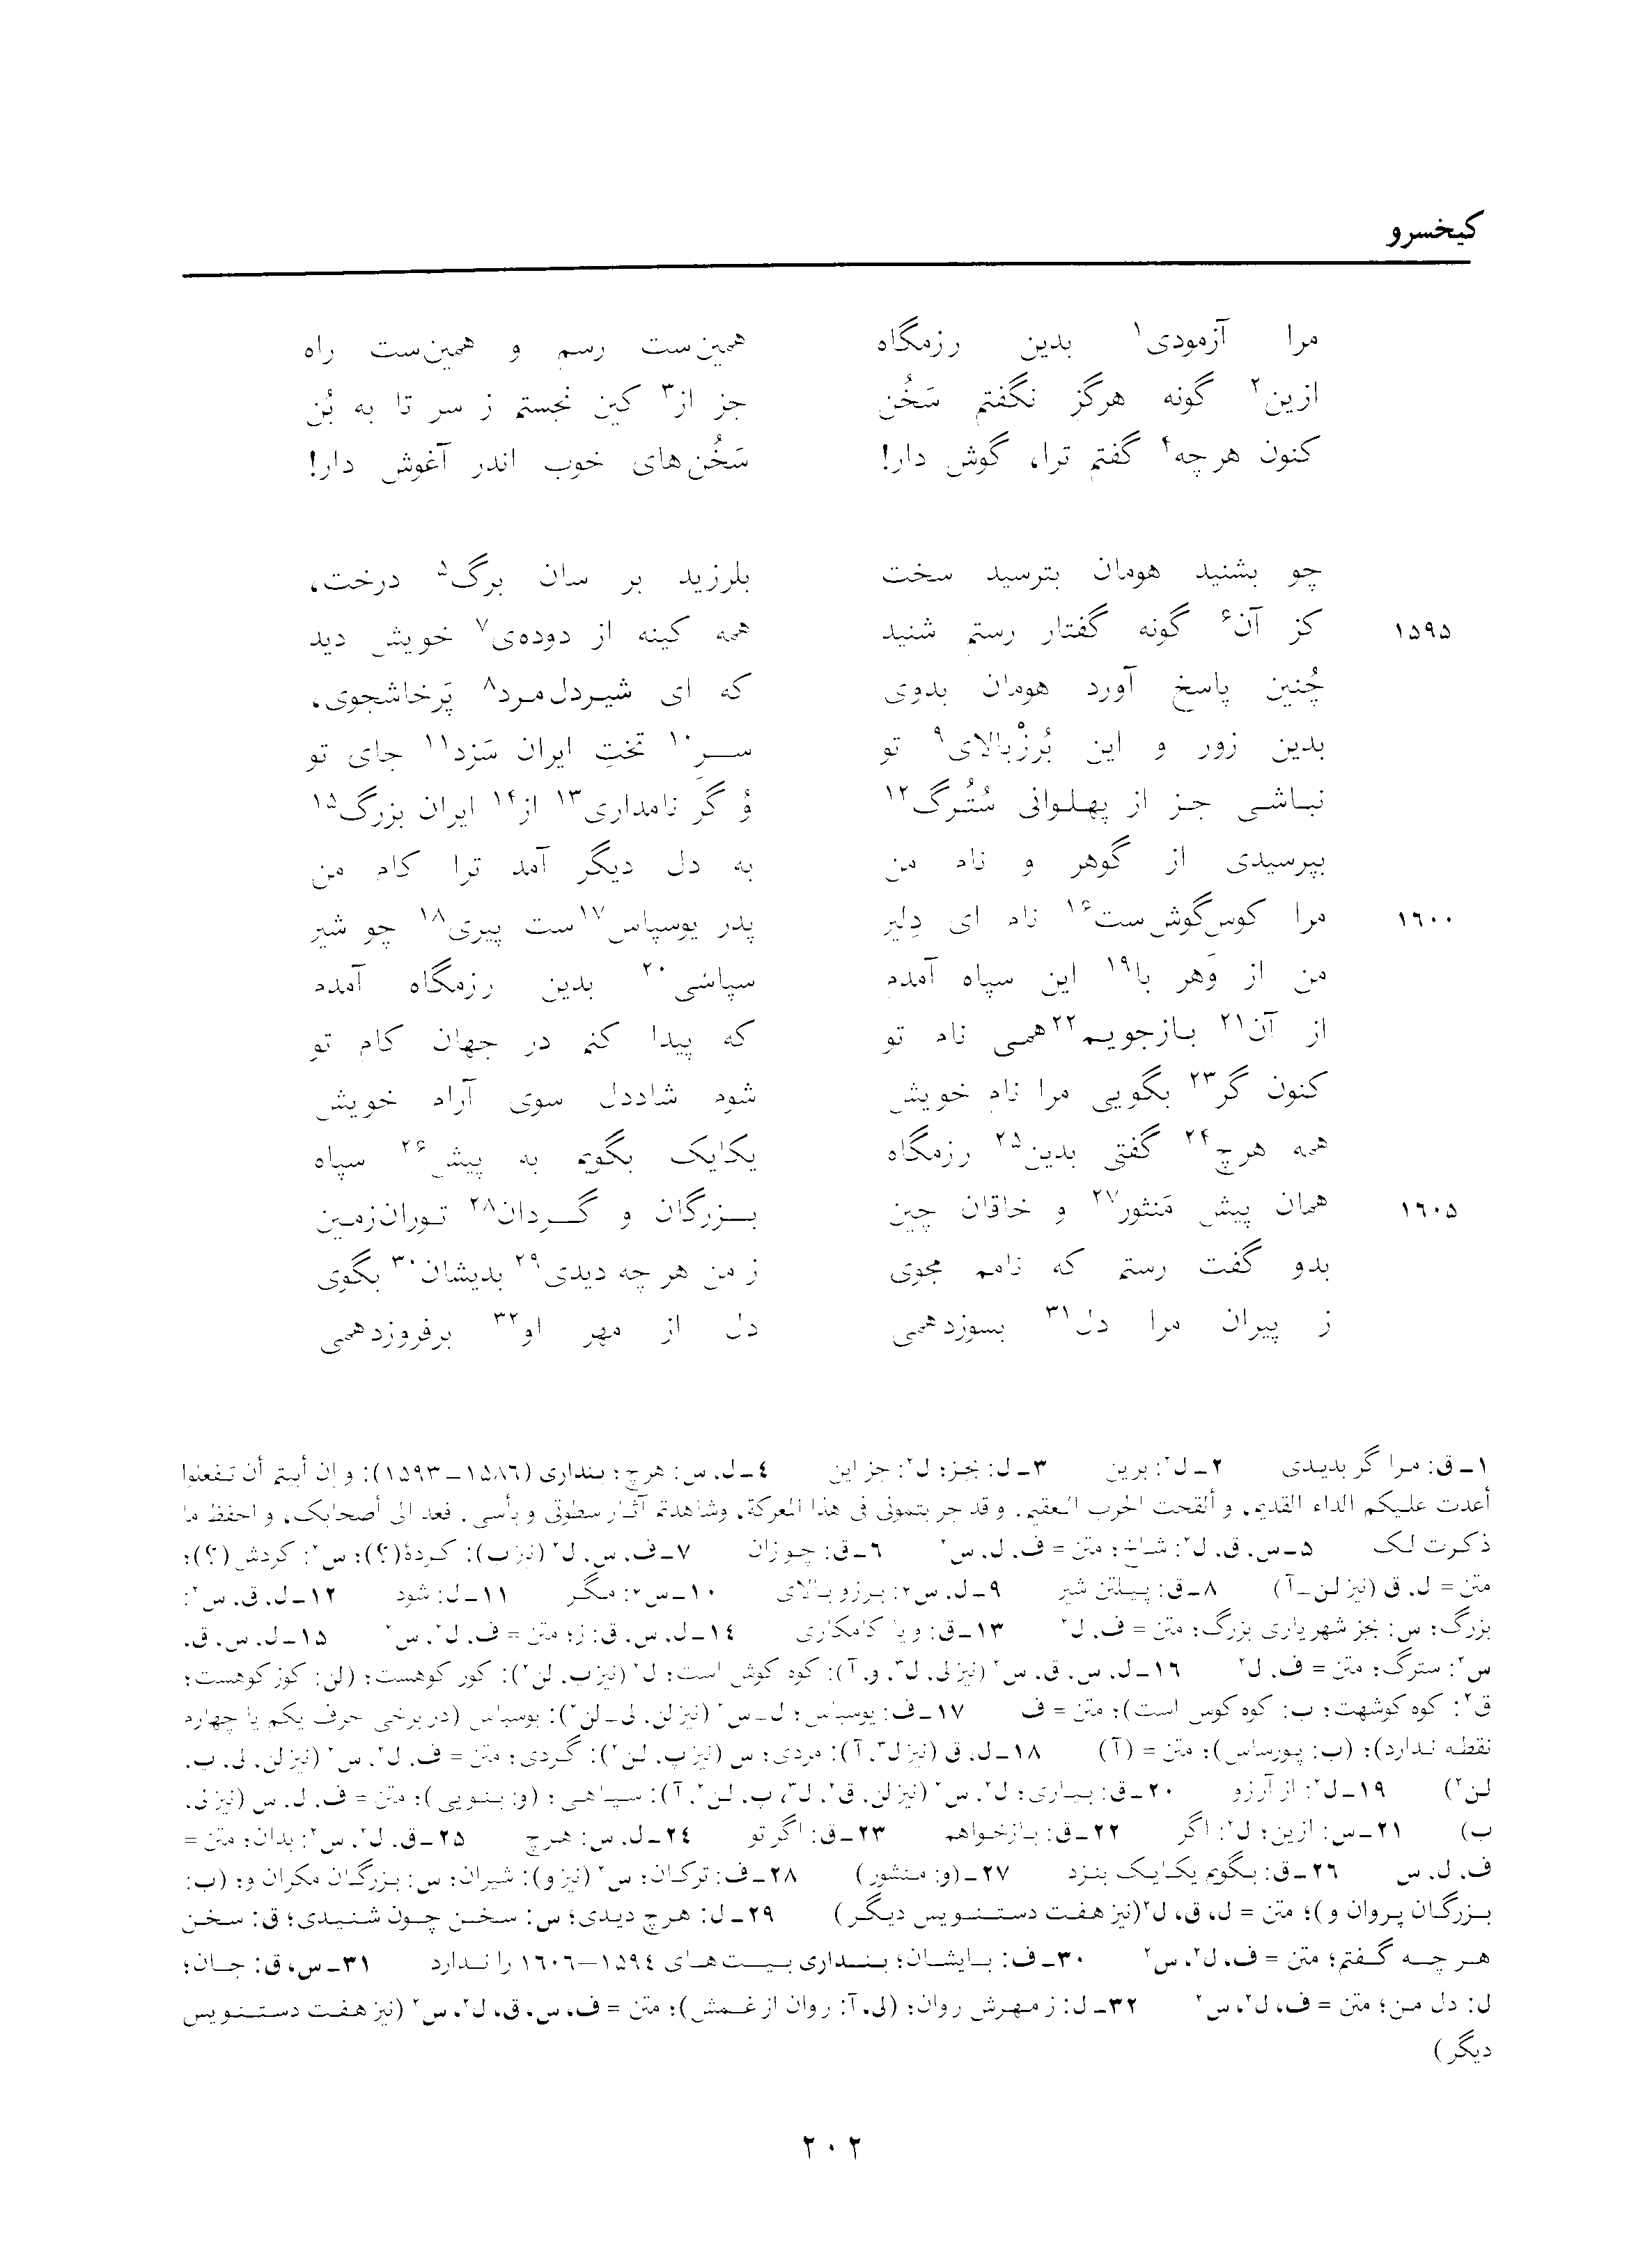 کیخسرو
مرا آزمودی۱ بدین رزمگاه همین‌ست رسم و همین‌ست راه
ازین۲ گونه هرگز نگفتم سَخُن جز از۳ کین نجستم ز سر تا به بُن
کنون هرچه۴ گفتم ترا، گوش دار! سَخُن‌های خوب اندر آغوش دار!
چو بشنید هومان بترسید سخت بلرزید بر سان برگ۵ درخت،
۱۵۹۵ کز آن۶ گونه گفتار رستم شنید همه کینه از دوده‌ی۷ خویش دید
چُنین پاسخ آورد هومان بدوی که ای شیردل‌مرد۸ پَرخاشجوی،
بدین زور و این بُرزْبالای۹ تو سرِ۱۰ تختِ ایران سَزد۱۱ جای تو
نباشی جز از پهلوانی سُتُرگ۱۲ وُ گر نامداری۱۳ از۱۴ ایران بزرگ۱۵
بپرسیدی از گوهر و نام من به دل دیگر آمد ترا کام من
۱۶۰۰ مرا کوس‌گوش‌ست۱۶ نام ای دِلیر پدر یوسپاس۱۷ست پیری۱۸ چو شیر
من از وَهر با۱۹ این سپاه آمدم سپاسی۲۰ بدین رزمگاه آمدم
از آن۲۱ بازجویم۲۲ همی نام تو که پیدا کنم در جهان کام تو
کنون گر۲۳ بگویی مرا نام خویش شوم شاددل سوی آرام خویش
همه هرچ۲۴ گفتی بدین۲۵ رزمگاه یکایک بگویم به پیش۲۶ سپاه
۱۶۰۵ همان پیش مَنثور۲۷ و خاقان چین بزرگان و گردان۲۸ توران‌زمین
بدو گفت رستم که نامم مجوی ز من هرچه دیدی۲۹ بدیشان۳۰ بگوی
ز پیران مرا دل۳۱ بسوزدهمی دل از مهر او۳۲ برفروزدهمی
۱ـ ق: مرا گر بدیدی ۲ـ ل۲: برین ۳ـ ل: بجز؛ ل۲: جز این ۴ـ ل، س: هرچ؛ بنداری (۱۵۸۶ـ۱۵۹۳): و إن أبیتم أن تفعلوا
أعدت علیکم الداء القدیم، و ألقحت الحرب العقیم. و قد جربتمونی فی هذا المعرکة، وشاهدتم آثار سطوتی و بأسی. فعد الی أصحابک، و احفظ ما
ذکرت لک ۵ـ س، ق، ل۲: شاخ؛ متن = ف، ل، س۲ ۶ـ ق: چوزان ۷ـ ف، س، ل۲ (نیز ب): کردهٔ(؟)؛ س۲: کردش (؟)؛
متن = ل، ق (نیز لن ـ آ) ۸ـ ق: پیلتن شیر ۹ـ ل، س۲: برزو بالای ۱۰ـ س۲: مگر ۱۱ـ ل: شود ۱۲ـ ل، ق، س۲:
بزرگ؛ س: بجز شهریاری بزرگ؛ متن = ف، ل۲ ۱۳ـ ق: و یا کامکاری ۱۴ـ ل، س، ق: ز؛ متن = ف، ل۲، س۲ ۱۵ـ ل، س، ق،
س۲: سترگ؛ متن = ف، ل۲ ۱۶ـ ل، س، ق، س۲ (نیز لی، ل۳، و، آ): کوه کوش است؛ ل۲ (نیز ب، لن۲): کور کوهست؛ (لن: کوز کوهست؛
ق۲: کوه کوشهت؛ ب: کوه کوس است)؛ متن = ف ۱۷ـ ف: یوسپاس؛ ل ـ س۲ (نیز لن، لی ـ لن۲): بوسباس (در برخی حرف یکم یا چهارم
نقطه ندارد)؛ (ب: پورساس)؛ متن = (آ) ۱۸ـ ل، ق (نیز ل۳، آ): مردی؛ س (نیز پ، لن۲): گردی؛ متن = ف، ل۲، س۲ (نیز لن، لی، ب،
لن۲) ۱۹ـ ل۲: از آرزو ۲۰ـ ق: بیاری؛ ل۲، س۲ (نیز لن، ق۲، ل۳، پ، لن۲، آ): سپاهی؛ (و: بنویی)؛ متن = ف، ل، س (نیز لی،
ب) ۲۱ـ س: ازین؛ ل۲: اگر ۲۲ـ ق: بازخواهم ۲۳ـ ق: اگر تو ۲۴ـ ل، س: هرچ ۲۵ـ ق، ل۲، س۲: بدان؛ متن =
ف، ل، س ۲۶ـ ق: بگویم یکایک بنزد ۲۷ـ (و: منشور) ۲۸ـ ف: ترکان؛ س۲ (نیز و): شیران؛ س: بزرگان مکران و؛ (ب:
بزرگان پروان و)؛ متن = ل، ق، ل۲ (نیز هفت دستنویس دیگر) ۲۹ـ ل: هرچ دیدی؛ س: سخن چون شنیدی؛ ق: سخن
هر چه گفتم؛ متن = ف، ل۲، س۲ ۳۰ـ ف: بایشان؛ بنداری بیت‌های ۱۵۹۴ـ۱۶۰۶ را ندارد ۳۱ـ س، ق: جان؛
ل: دل من؛ متن = ف، ل۲، س۲ ۳۲ـ ل: ز مهرش روان؛ (لی، آ: روان از غمش)؛ متن = ف، س، ق، ل۲، س۲ (نیز هفت دستنویس
دیگر)
۲۰۲